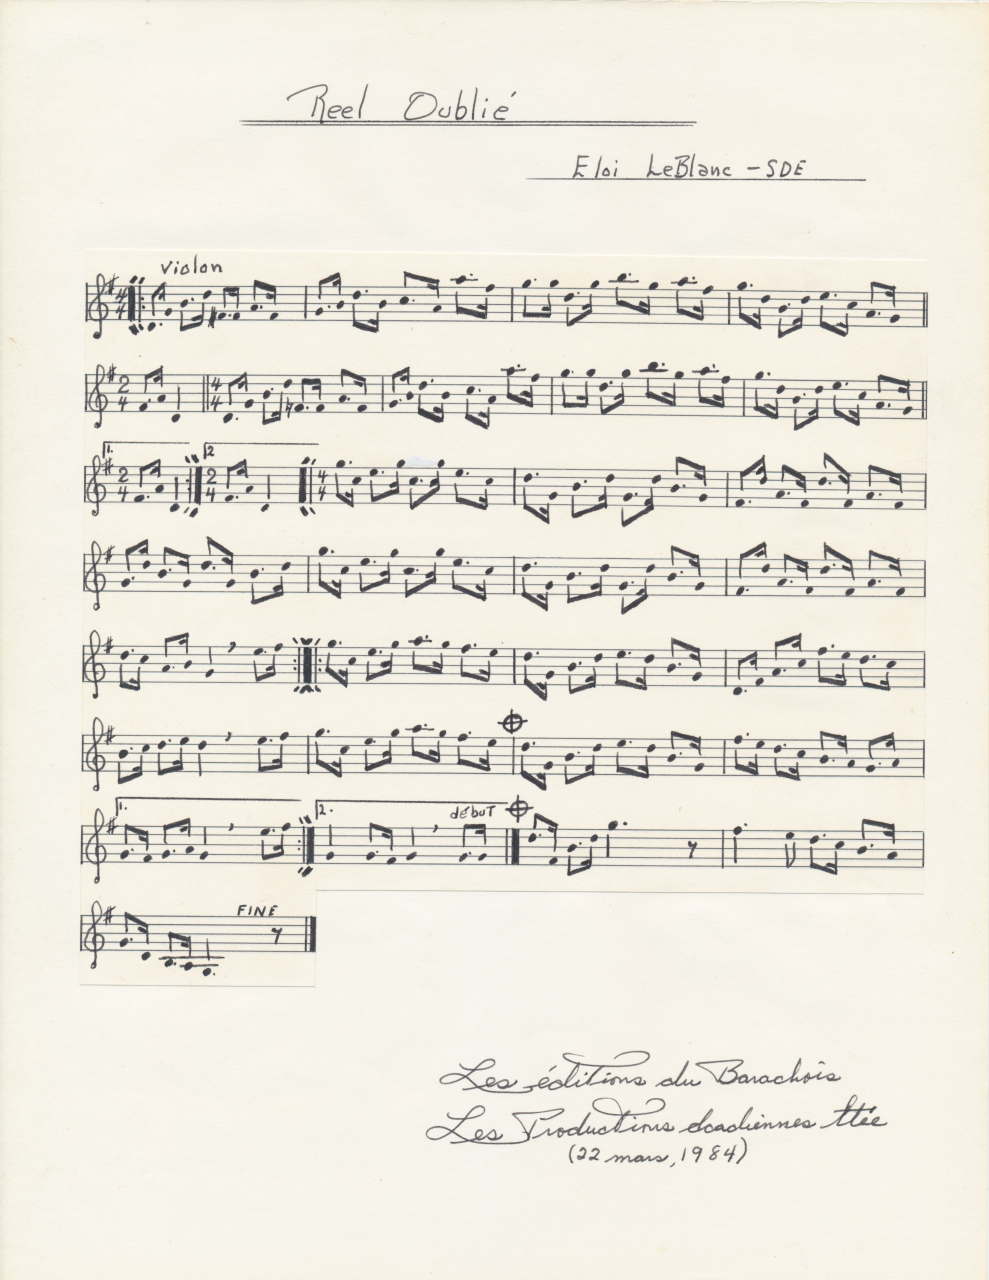 Reel Oublié
Eloi LeBlanc - SDE
violon
4/4
2/4 4/4
1. 2/4 2 2/4 4/4
1. 2. début
FINE
Les éditions du Barachois
Les Productions Acadiennes ltée
(22 mars, 1984)